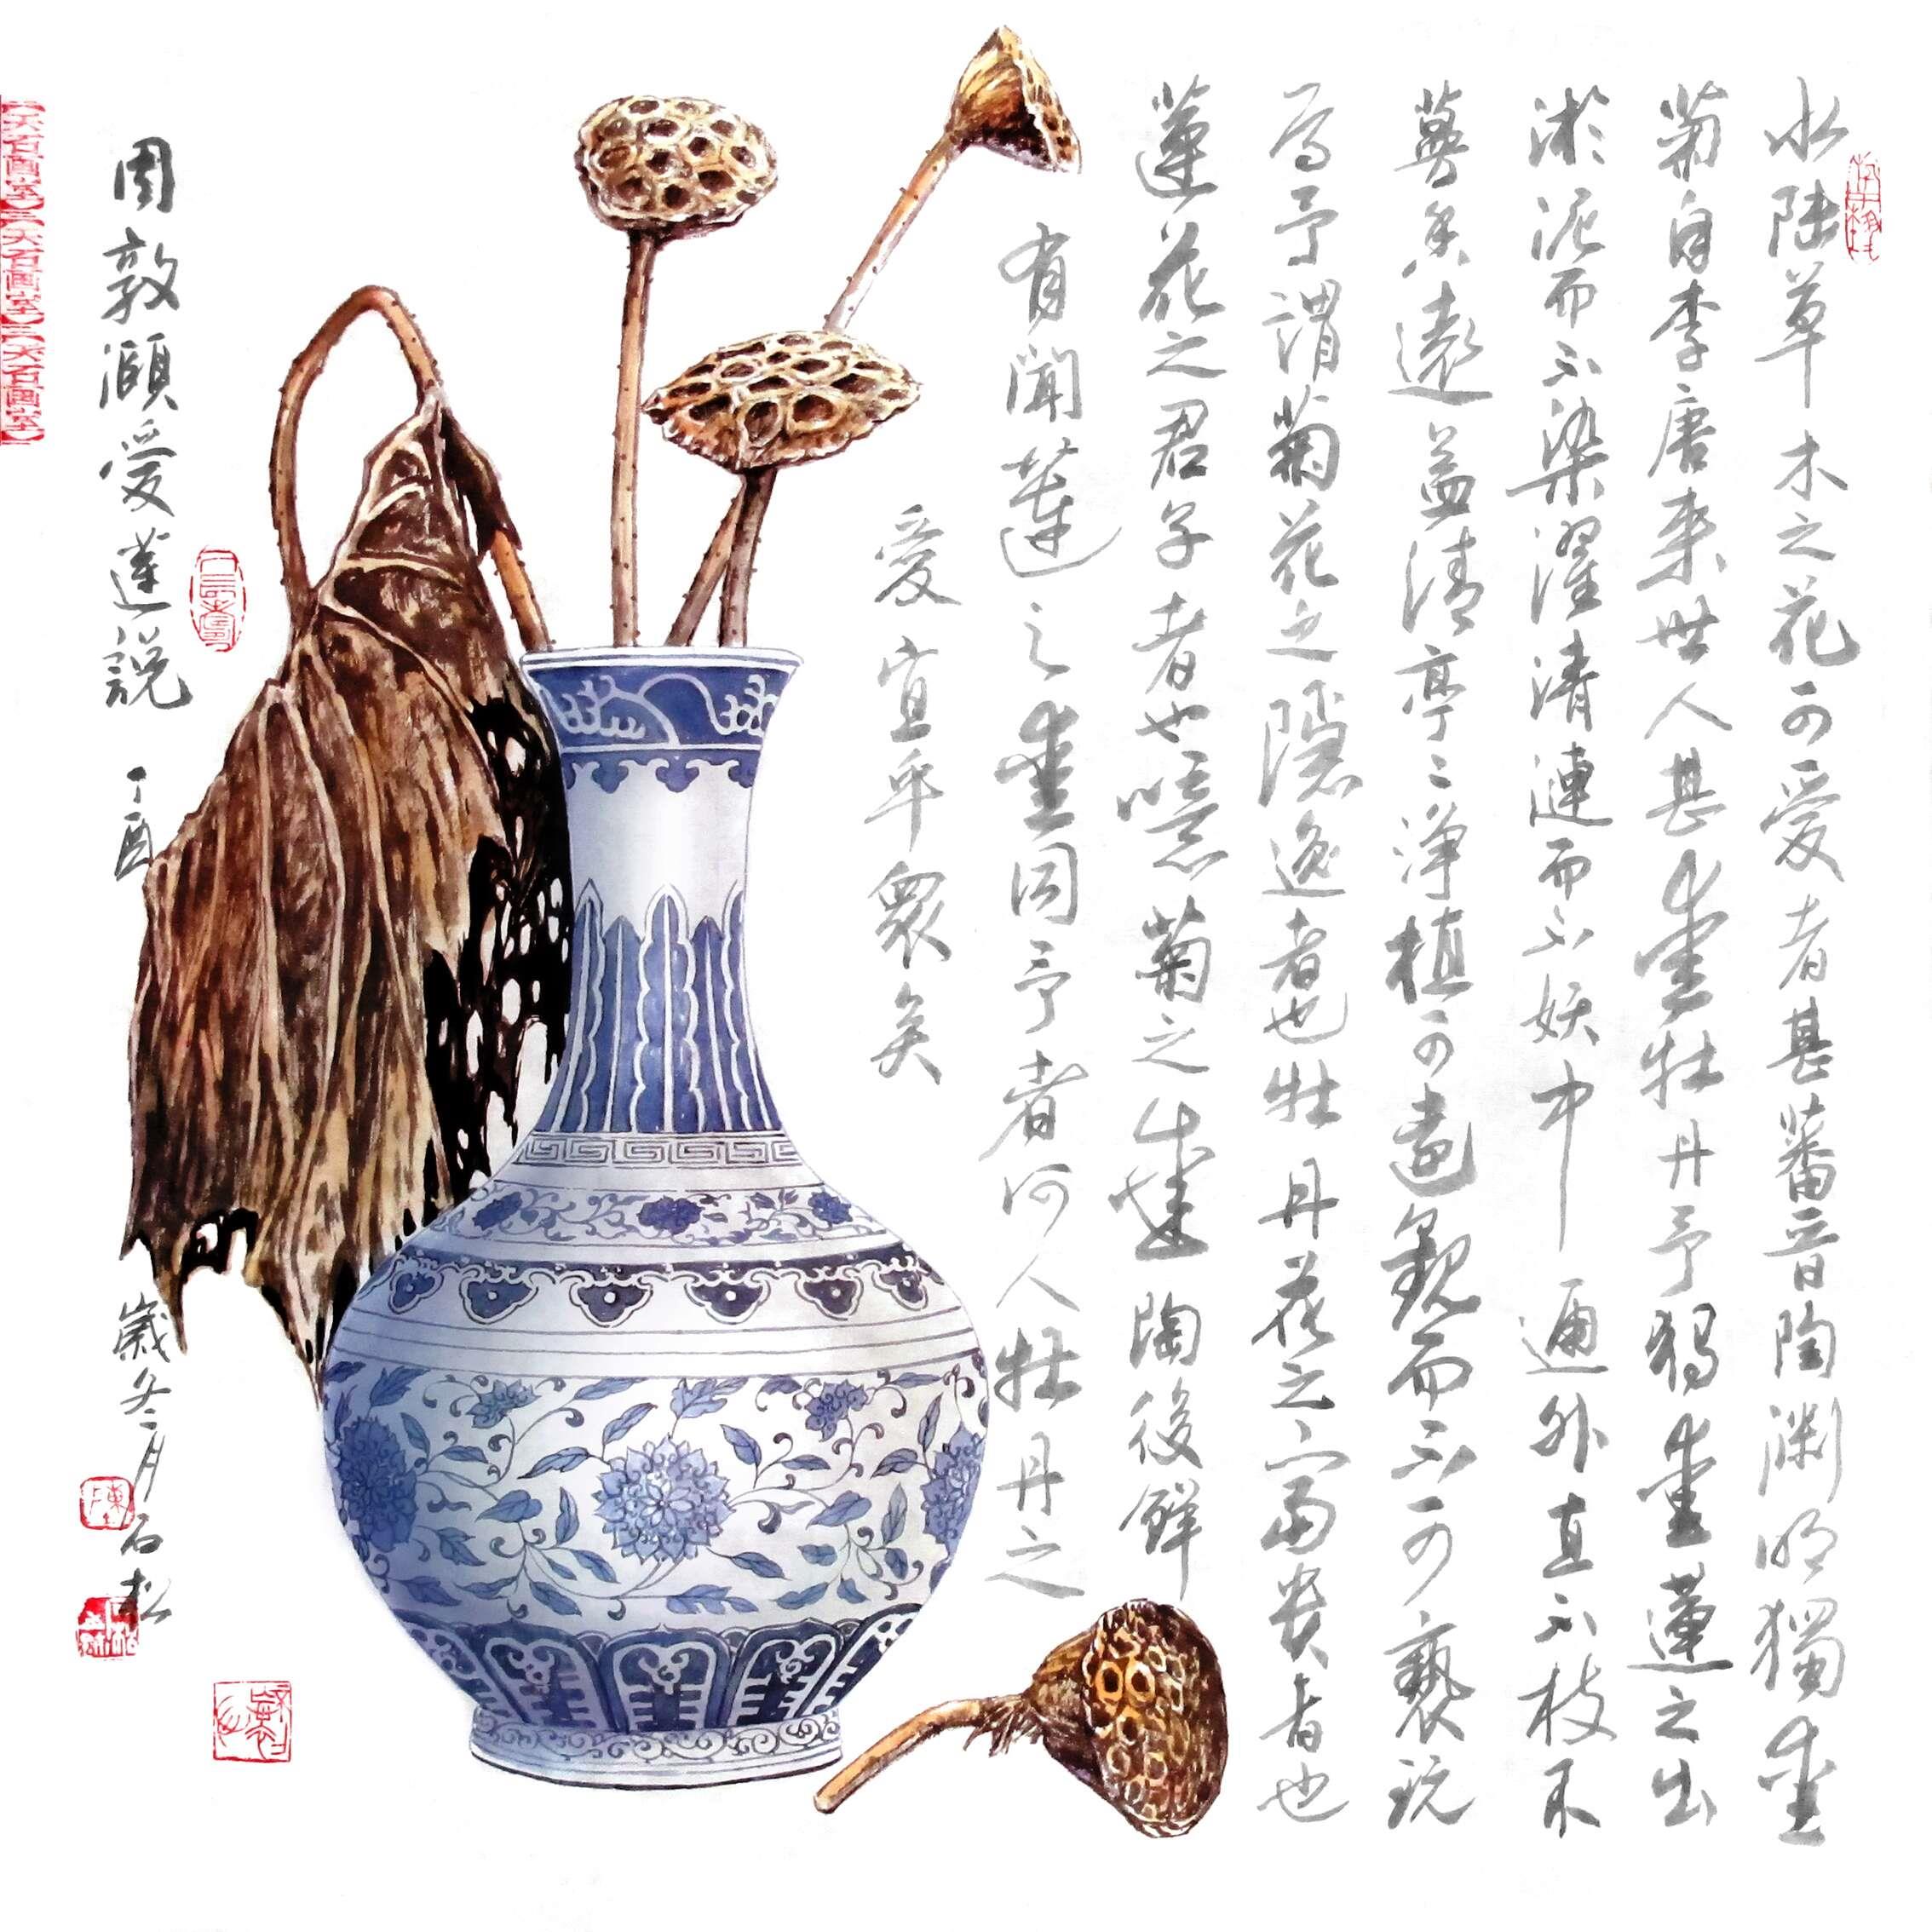 水陸草木之花可愛者甚蕃晋陶渊明獨愛
菊自李唐來世人甚愛牡丹予獨愛蓮之出
淤泥而不染濯清漣而不妖中通外直不枝不
蔓香遠益清亭〻淨植可遠觀而不可褻玩
焉予謂菊花之隱逸者也牡丹花之富貴者也
蓮花之君子者也噫菊之愛陶後鮮
有聞蓮之愛同予者何人牡丹之
愛宜乎眾矣
周敦頤愛蓮説 丁酉歲冬月石松